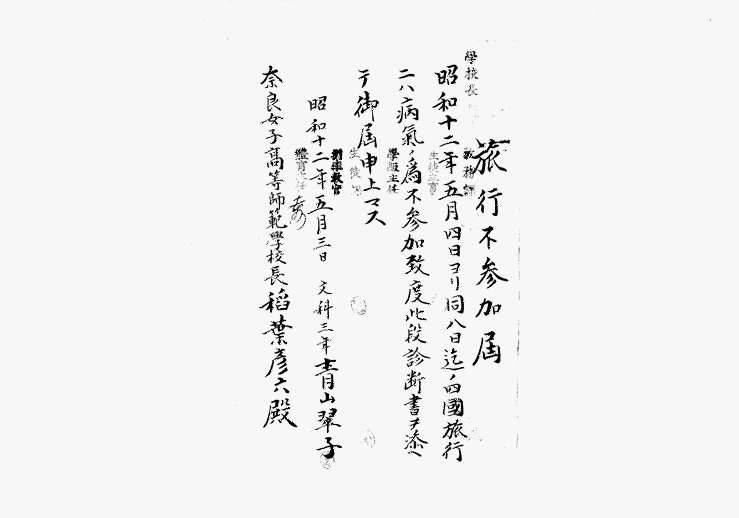 旅行不参加届
昭和十二年五月四日ヨリ同八日迄ノ四國旅行
ニハ病氣ノ爲不参加致度此段診断書ヲ添ヘ
テ御届申上マス
昭和十二年五月三日 文科三年 青山翠子
奈良女子高等師範學校長稻葉彦六殿
學校長
教務課
生徒主事
學級主任
生徒課
體育主任